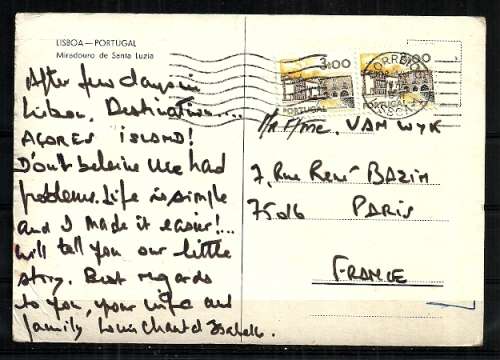 LISBOA — PORTUGAL
Miradouro de Santa Luzia
After few days in
Lisboa, Destination....
AÇORES ISLAND!
Don't beleive we had
problems. Life is simple
and I made it easier!...
will tell you our little
story. Best regards
to you, your wife and
family Louis Chantal Isabelle.
3$00
PORTUGAL
3$00
PORTUGAL
CORREIOS
LISBOA
Mr & Mme. VAN WYK
7, Rue René BAZIN
75016 PARIS
FRANCE